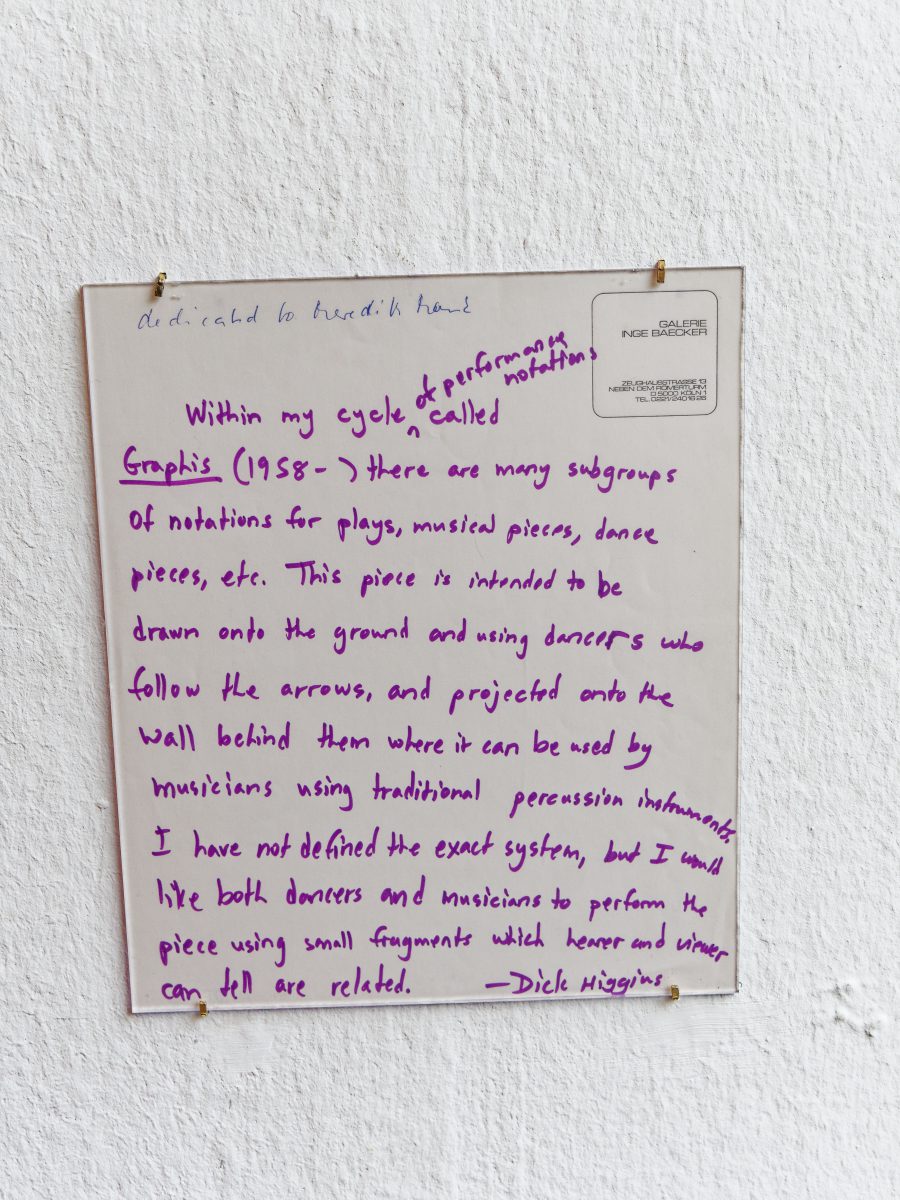 dedicated to Meredith Monk
GALERIE
INGE BAECKER
ZEUGHAUSSTRASSE 13
NEBEN DEM RÖMERTURM
D 5000 KÖLN 1
TEL. 0221/24016 26
of performance
notations
Within my cycle ^ called
Graphis (1958- ) there are many subgroups
of notations for plays, musical pieces, dance
pieces, etc. This piece is intended to be
drawn onto the ground and using dancers who
follow the arrows, and projected onto the
wall behind them where it can be used by
musicians using traditional percussion instruments.
I have not defined the exact system, but I would
like both dancers and musicians to perform the
piece using small fragments which hearer and viewer
can tell are related. —Dick Higgins